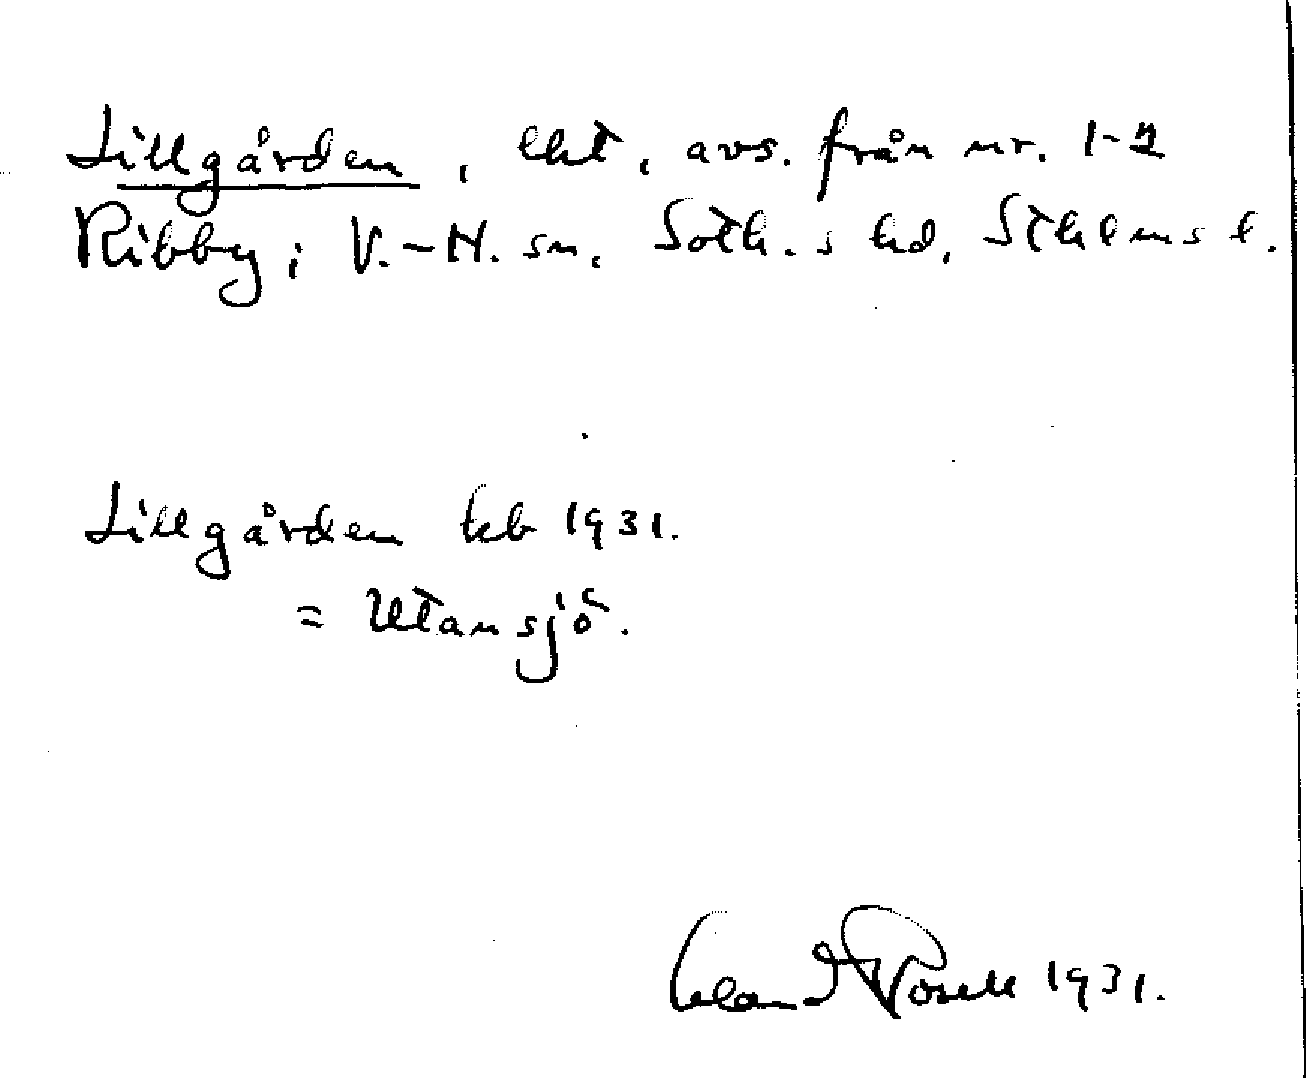 Lillgården, lht, avs. från nr. 1-2
Ribby, i V.-H. sn. Soth.s hd, Sthlms l.
Lillgården tkb 1931.
= Utansjö.
Erland Rosell 1931.